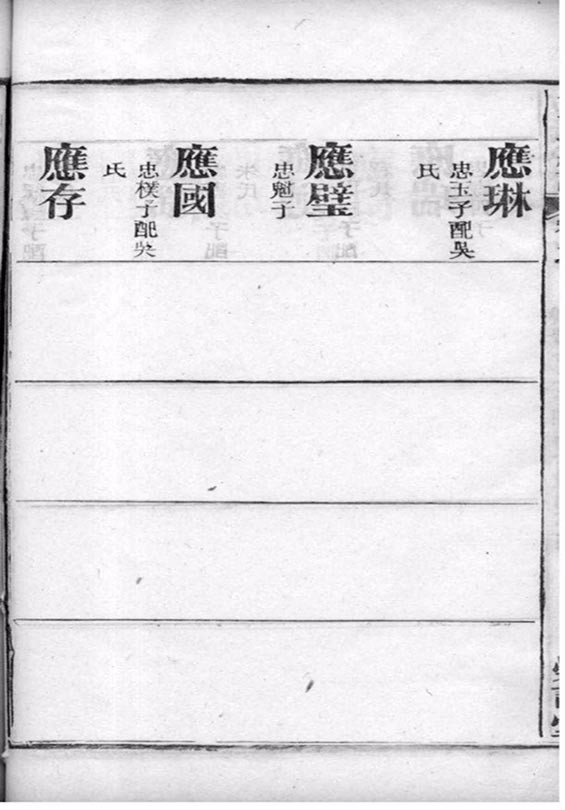 應琳
忠玉子配吳
氏
應璧
忠魁子
應國
忠樸子配吳
氏
應存